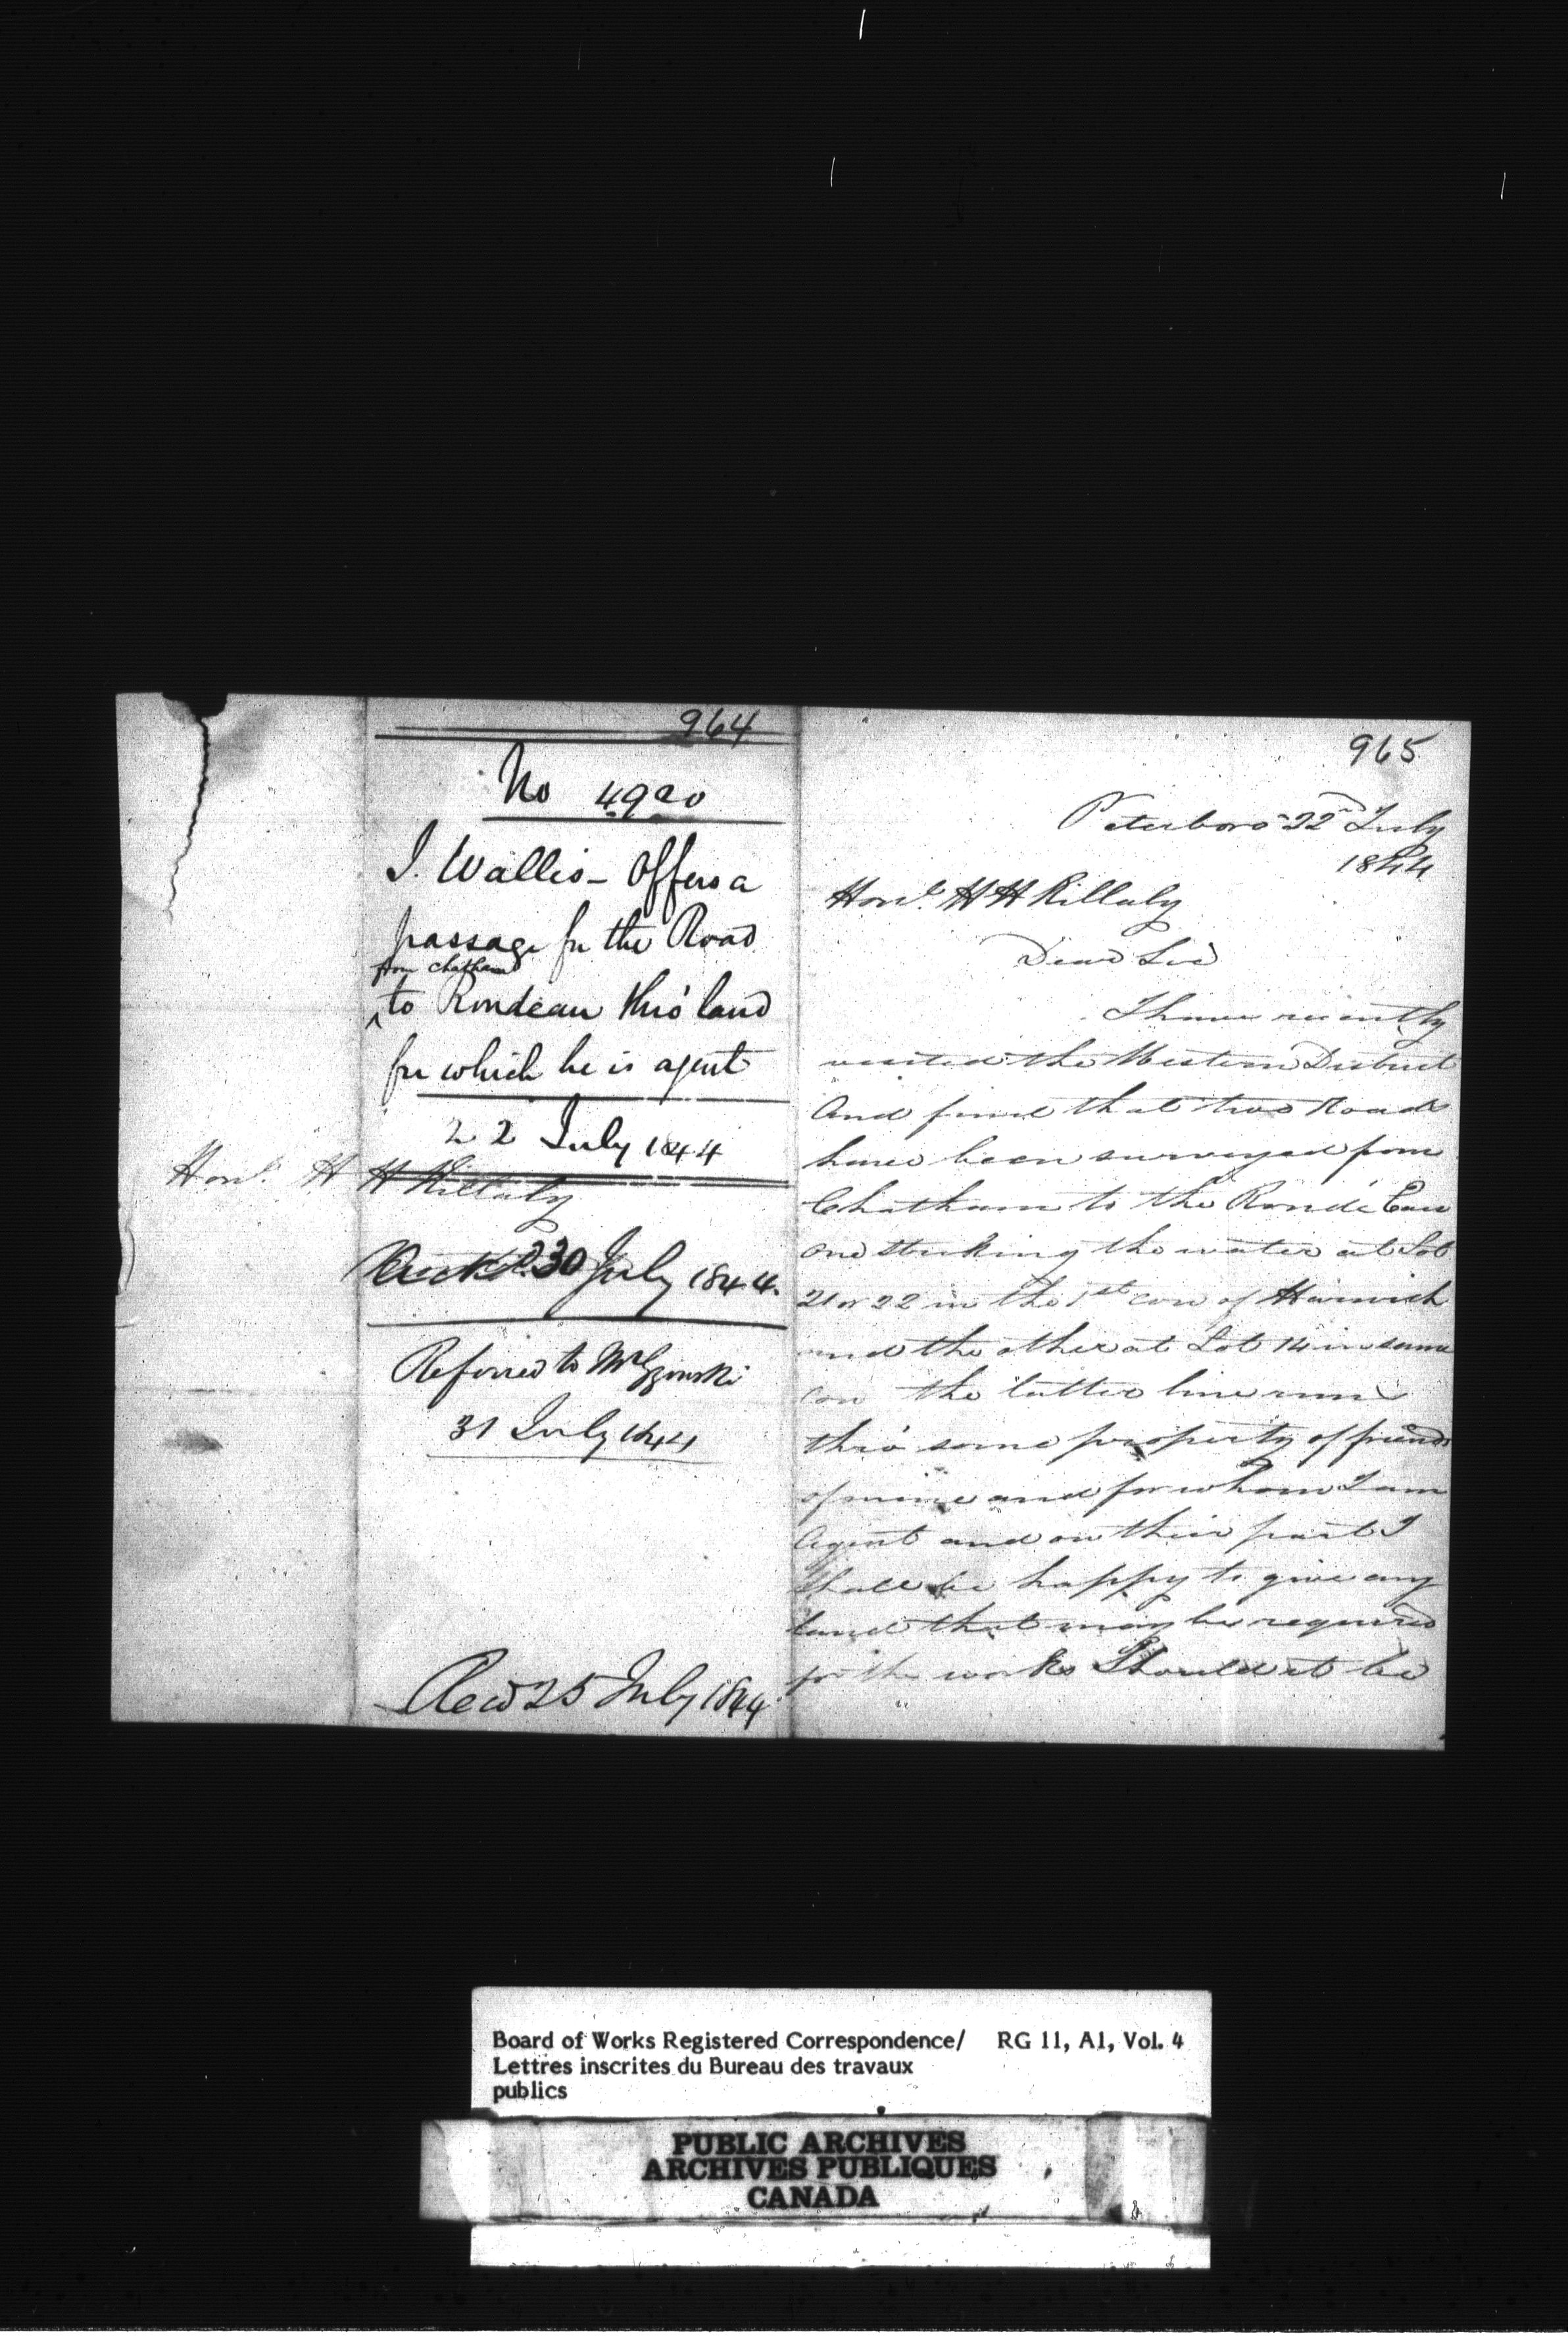 964
No 4920
J. Wallis - Offers a
passage for the Road
from Chatham
to Rondeau thro' land
for which he is agent
22 July 1844
Honl. H H Killaly
30 July 1844.
Referred to Mr Gzowski
31 July 1844
Recd 25 July 1844
965
Peterboro 22nd July
1844
Honl. H H Killaly
Dear Sir
I have recently
visited the Western District
And find that two Roads
have been surveyed from
Chatham to the Ronde Eau
one striking the water at Lot
21 or 22 in the 1st con of Harwich
and the other at Lot 14 in same
con the latter line runs
thro' some property of friends
of mine and for whom I am
Agent and on their part I
shall be happy to give any
land that may be required
for the works Should it be
Board of Works Registered Correspondence/ RG 11, A1, Vol. 4
Lettres inscrites du Bureau des travaux
publics
PUBLIC ARCHIVES
ARCHIVES PUBLIQUES
CANADA